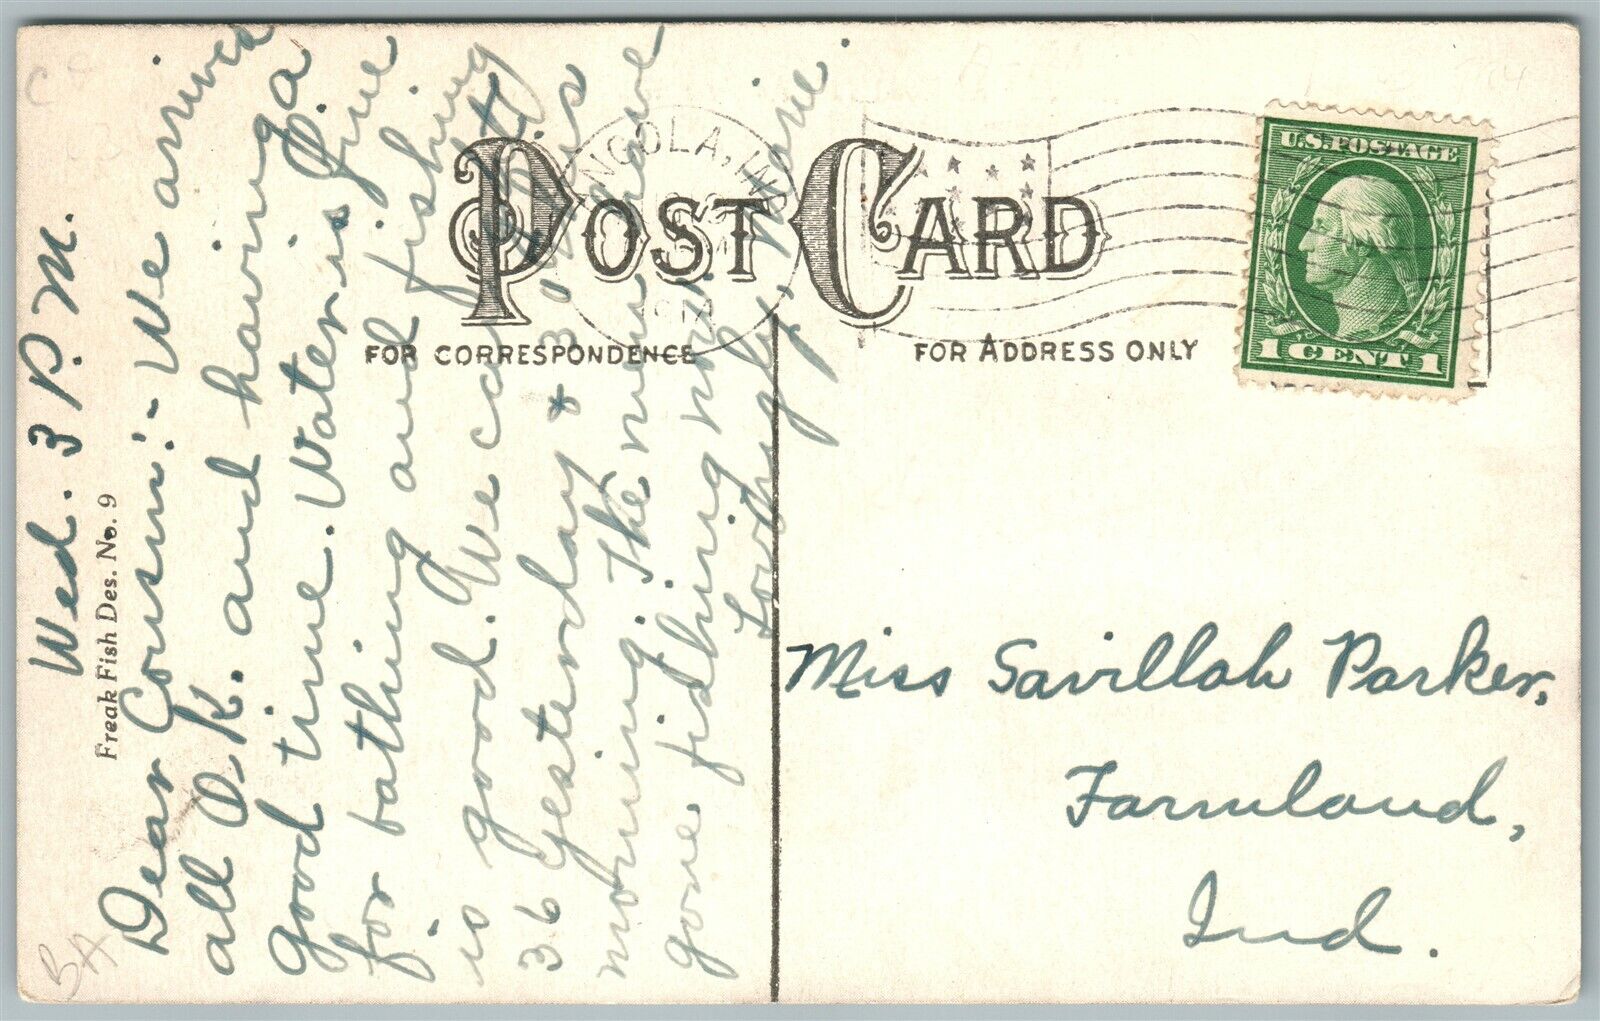 POST CARD
FOR CORRESPONDENCE
FOR ADDRESS ONLY
U.S. POSTAGE
1 CENT 1
ANGOLA, IND
1914
Freak Fish Des. No. 9
Wed. 3 P.M.
Dear Cousin:- We arrived
all O.K. and having a
good time. Water is fine
for bathing and fishing
is good. We caught
36 yesterday & 3 this
morning. The men have
gone fishing now.
Lovingly, Marie.
Miss Savillah Parker,
Farmland,
Ind.
BA